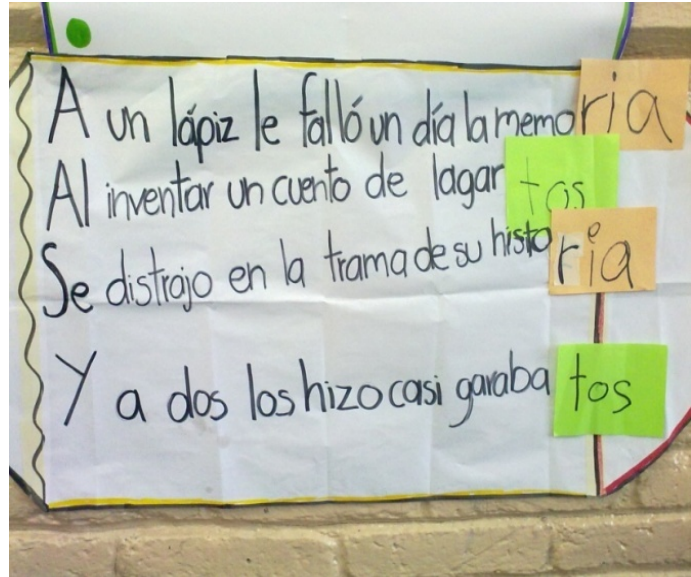 A un lápiz le falló un día la memoria
Al inventar un cuento de lagartos
Se distrajo en la trama de su historia
Y a dos los hizo casi garabatos